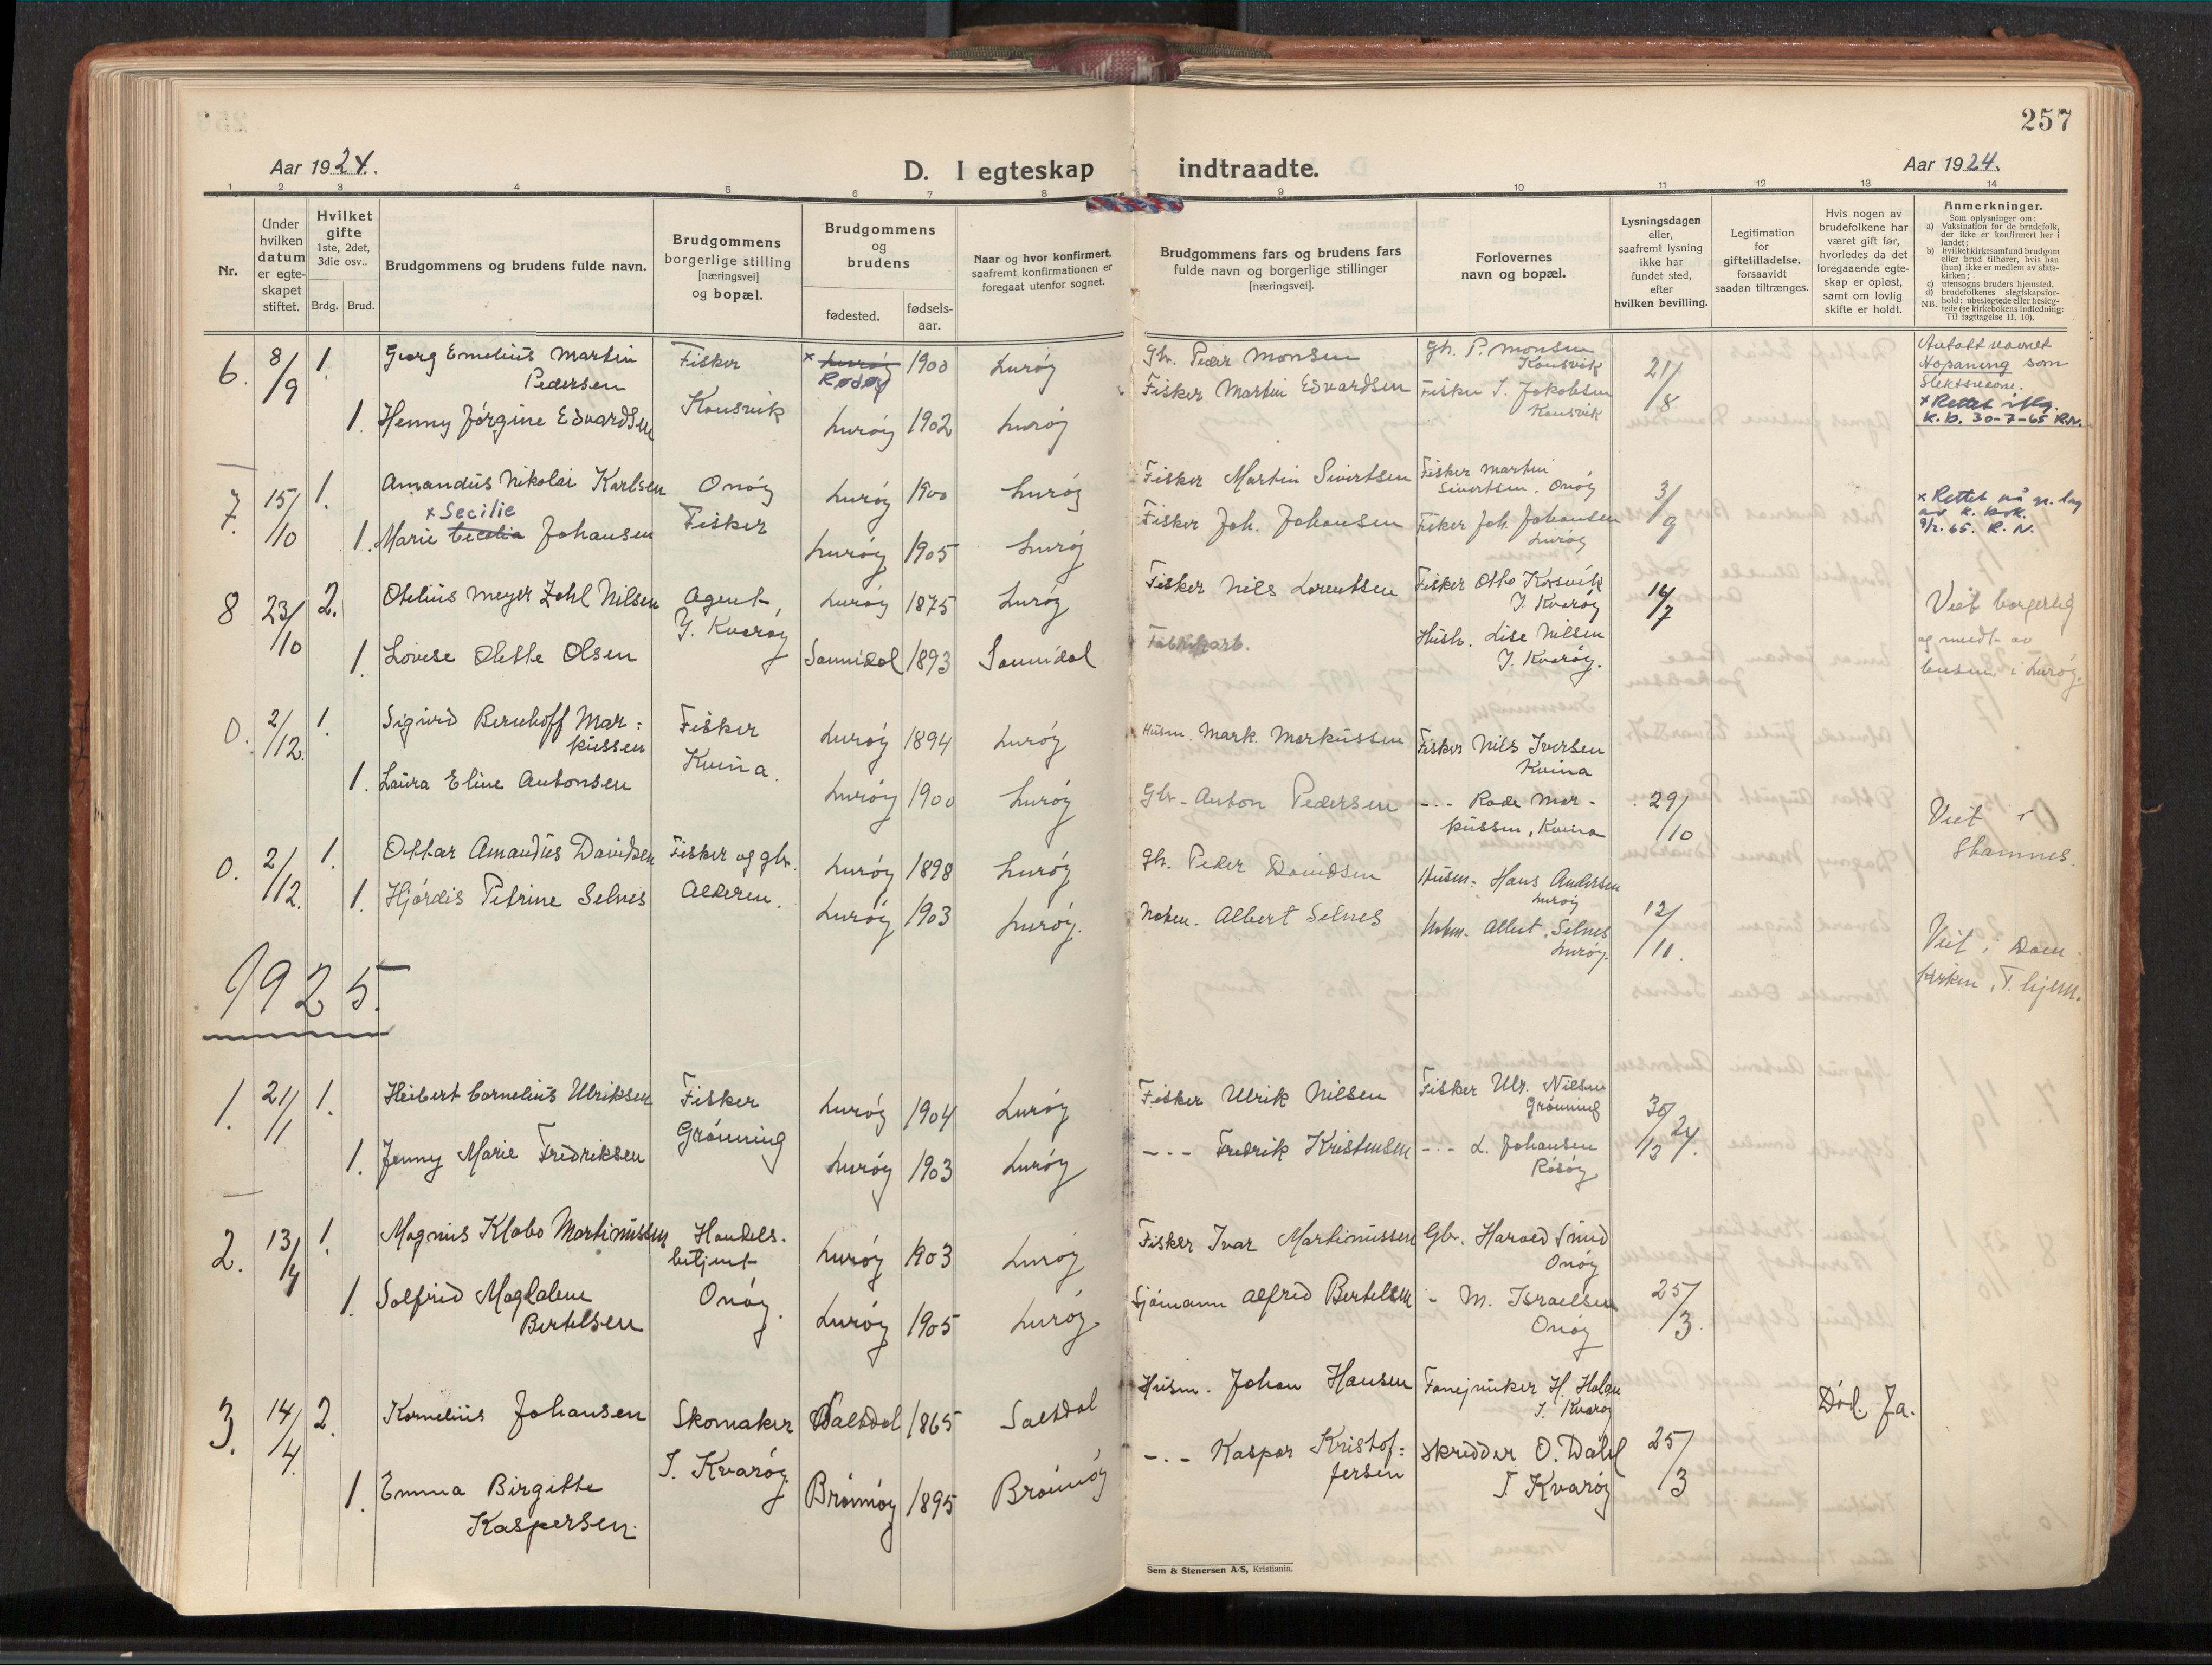 257
Aar 1924.
D. I egteskap indtraadte.
Aar 1924.
1 2 3 4 5 6 7 8 9 10 11 12 13 14
Nr.
Under hvilken datum er egte-skapet stiftet.
Hvilket gifte
1ste, 2det, 3die osv..
Brdg. Brud.
Brudgommens og brudens fulde navn.
Brudgommens borgerlige stilling [næringsvei] og bopæl.
Brudgommens og brudens
fødested.
fødsels-aar.
Naar og hvor konfirmert, saafremt konfirmationen er foregaat utenfor sognet.
Brudgommens fars og brudens fars fulde navn og borgerlige stillinger [næringsvei].
Forlovernes navn og bopæl.
Lysningsdagen eller, saafremt lysning ikke har fundet sted, efter hvilken bevilling.
Legitimation for giftetilladelse, forsaavidt saadan tiltrænges.
Hvis nogen av brudefolkene har været gift før, hvorledes da det foregaaende egte-skap er opløst, samt om lovlig skifte er holdt.
Anmerkninger.
Som oplysninger om:
a) Vaksination for de brudefolk, der ikke er konfirmert her i landet;
b) hvilket kirkesamfund brudgom eller brud tilhører, hvis han (hun) ikke er medlem av stats-kirken;
c) utensogns bruders hjemsted.
d) brudefolkenes slegtskapsfor-hold: ubeslegtede eller besleg-tede (se kirkebokens indledning: Til iagttagelse II. 10).
NB.
6. 8/9 1. Georg Emelius Martin Pedersen Fisker x Lurøy Rødøy 1900 Lurøy Gbr. Peder Monsen Gb. P. Monsen Konsvik 21/8
Antatt navnet Hopaneng som Slektsnavn.
x Rettet iflg. K.D. 30-7-65 R.N.
1. Henny Jørgine Edvardsen Konsvik Lurøy 1902 Lurøy Fisker Martin Edvardsen Fisker I. Jakobsen Konsvik
7. 15/10 1. Amandus Nikolai Karlsen Onøy Lurøy 1900 Lurøy Fisker Martin Sivertsen Fisker Martin Sivertsen. Onøy 3/9
x Secilie
1. Marie Cecelia Johansen Fisker Lurøy 1905 Lurøy Fisker Joh. Johansen Fisker Joh. Johansen Lurøy
x Rettet K. bok. 9/2.65. R. N.
8 23/10 2. Otelius Meyer Zahl Nilsen Agent, I. Kvarøy Lurøy 1875 Lurøy Fisker Nils Lorentsen Fisker Otto Korsvik I. Kvarøy 14/7
1. Lovise Olette Olsen Sannidal 1893 Sannidal Fabrikarb. Hush. Lise Nilsen I. Kvarøy.
Viet borgerlig og meedt av lensm. i Lurøy.
0. 2/12. 1. Sigurd Bernhoff Mar: kussen Fisker Lurøy 1894 Lurøy Husm. Mark. Markussen Fisker Nils Iversen Kvina
1. Laura Eline Antonsen Kvina. Lurøy 1900 Lurøy Gbr. Anton Pedersen -.- Rade Mar-kussen, Kvina 29/10
Viet i Stamnes.
0. 2/12. 1. Ottar Amandus Davidsen Fisker og gbr. Lurøy 1898 Lurøy Gb. Peder Davidsen Husm. Hans Andersen Lurøy
1. Hjørdis Petrine Selnes Alderen. Lurøy 1903 Lurøy. Albert Selnes Albert. Selnes Lurøy. 12/11.
Viet i Dom kirken, T.hjem.
1925.
1. 21/1 1. Heibert Cornelius Ulriksen Fisker Lurøy 1904 Lurøy Fisker Ulrik Nilsen Fisker Ulr. Nilsen Grønning 30/12 24.
1. Jenny Marie Fredriksen Grønning Lurøy 1903 Lurøy -.- Fredrik Kristensen -.- L. Johansen Risøy
2. 13/4 1. Magnus Klabo Martinussen Handels-betjent Lurøy 1903 Lurøy Fisker Ivar Martinussen Gbr. Harald Smid Onøy
1. Solfrid Magdalene Bertelsen Onøy. Lurøy 1905 Lurøy Sjømann Alfred Bertelsen - M. Israelsen Onøy 25/3.
3. 14/4. 2. Kornelius Johansen Skomaker Saltdal 1865 Saltdal Husm. Johan Hansen Fanejunker H. Holan I. Kvarøy Død. Ja.
1. Emma Birgitte Kaspersen. I. Kvarøy. Brønnøy 1895 Brønnøy -.- Kaspar Kristof: fersen Skredder O. Dahl I Kvarøy 25/3
Sem & Stenersen A/S, Kristiania.